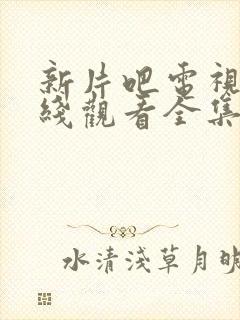 新片吧電視
綫觀看全集
水清淺草月明